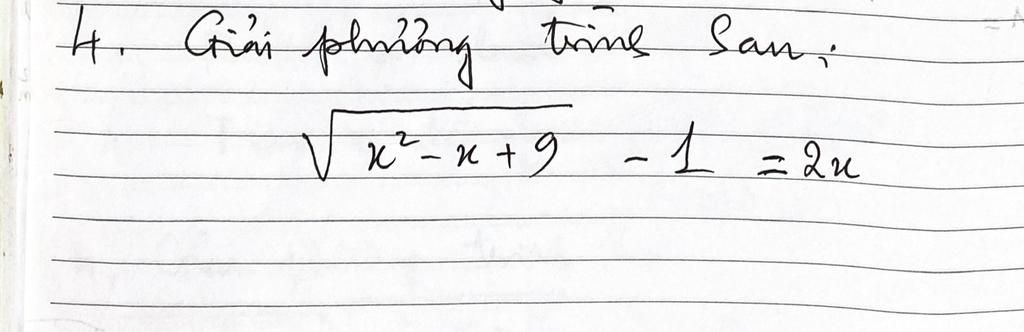 4. Giải phương trình sau:
√(x² - x + 9) - 1 = 2x